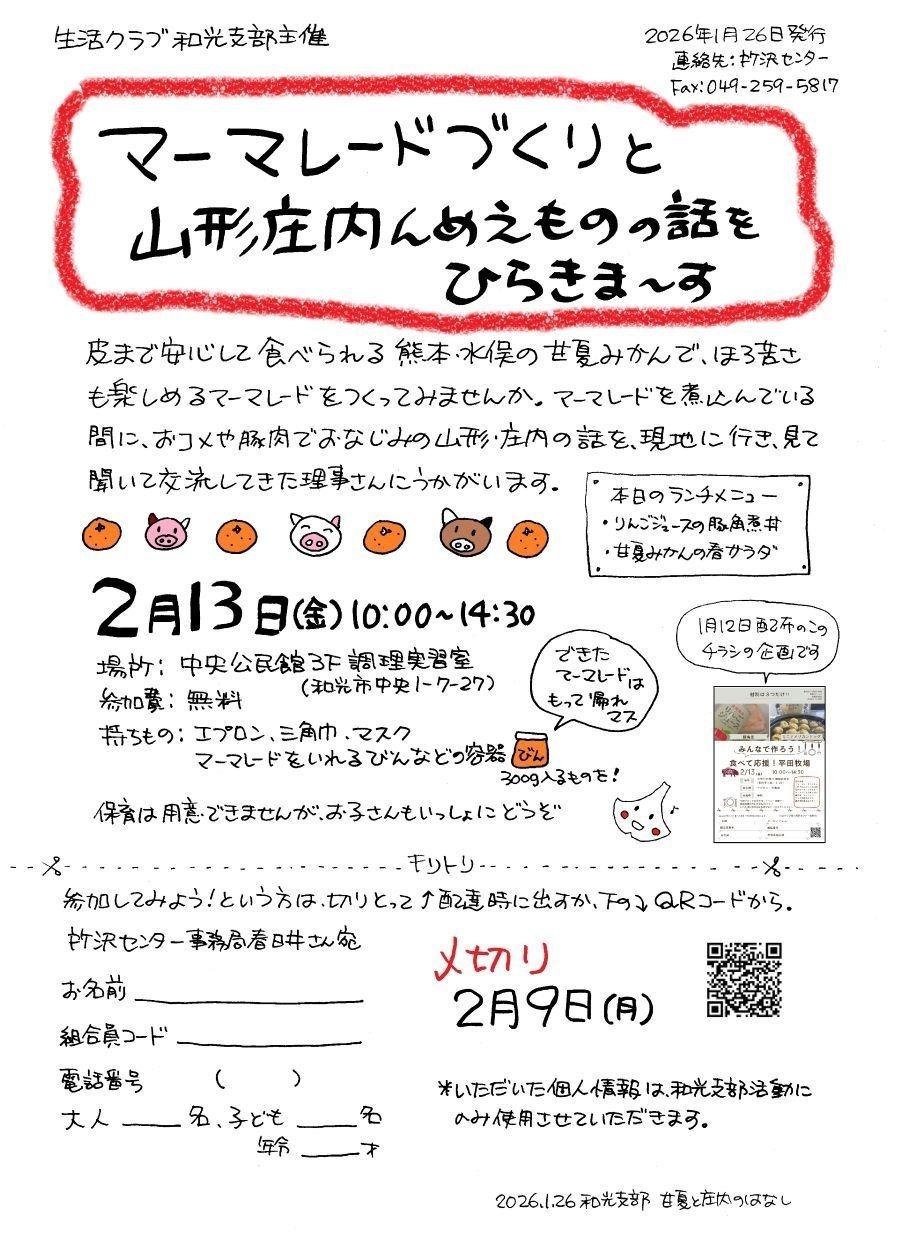 生活クラブ和光支部主催
2026年1月26日発行
連絡先:所沢センター
Fax:049-259-5817
マーマレードづくりと
山形庄内んめえものの話を
ひらきま〜す
皮まで安心して食べられる熊本・水俣の甘夏みかんで、ほろ苦さ
も楽しめるマーマレードをつくってみませんか。マーマレードを煮込んでいる
間に、おコメや豚肉でおなじみの山形・庄内の話を、現地に行き、見て
聞いて交流してきた理事さんにうかがいます。
本日のランチメニュー
・りんごジュースの豚角煮丼
・甘夏みかんの春サラダ
2月13日(金)10:00〜14:30
場所:中央公民館3F調理実習室
(和光市中央1-7-27)
参加費:無料
持ちもの:エプロン、三角巾、マスク
マーマレードをいれるびんなどの容器
びん
300g入るものを!
できた
マーマレードは
もって帰れ
マス
1月12日配布のこ
チラシの企画です
材料は3つだけ!!
みんなで作ろう!
食べて応援!平田牧場
2/13(金) 10:00〜14:30
保育は用意できませんが、お子さんもいっしょにどうぞ
キリトリ
参加してみよう!という方は、切りとって↑配達時に出すか、下の↓QRコードから。
所沢センター事務局春日井さん宛
お名前
組合員コード
電話番号 ( )
大人 名、子ども 名
年齢 才
〆切り
2月9日(月)
*いただいた個人情報は、和光支部活動に
のみ使用させていただきます。
2026.1.26 和光支部 甘夏と庄内のはなし